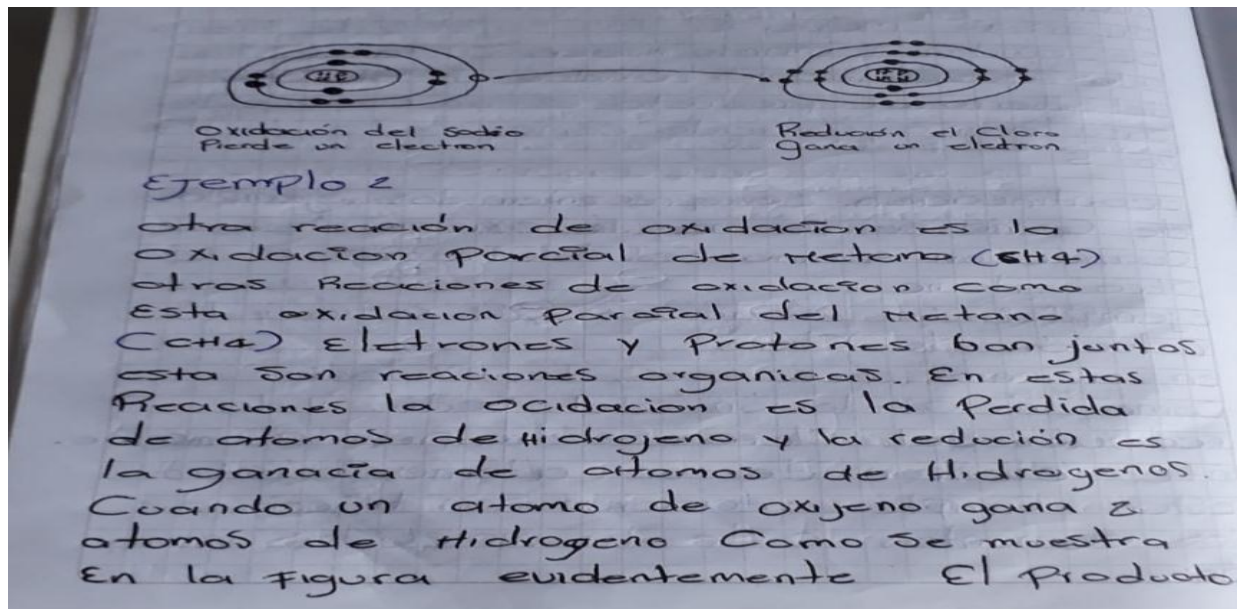 Oxidación del sodio
Pierde un electron
Redución el Cloro
gana un eletron
EJemplo 2
otra reación de oxidacion es la
oxidacion parcial de Metano (CH4)
otras Reaciones de oxidacion como
Esta oxidacion parcial del Metano
(CH4) Eletrones y Protones ban juntos
esta son reaciones organicas. En estas
Reaciones la ocidacion es la Perdida
de atomos de Hidrojeno y la redución es
la ganacia de attomos de Hidrogenos.
Cuando un atomo de oxijeno gana 2
atomos de Hidrogeno Como se muestra
En la Figura evidentemente El Producto